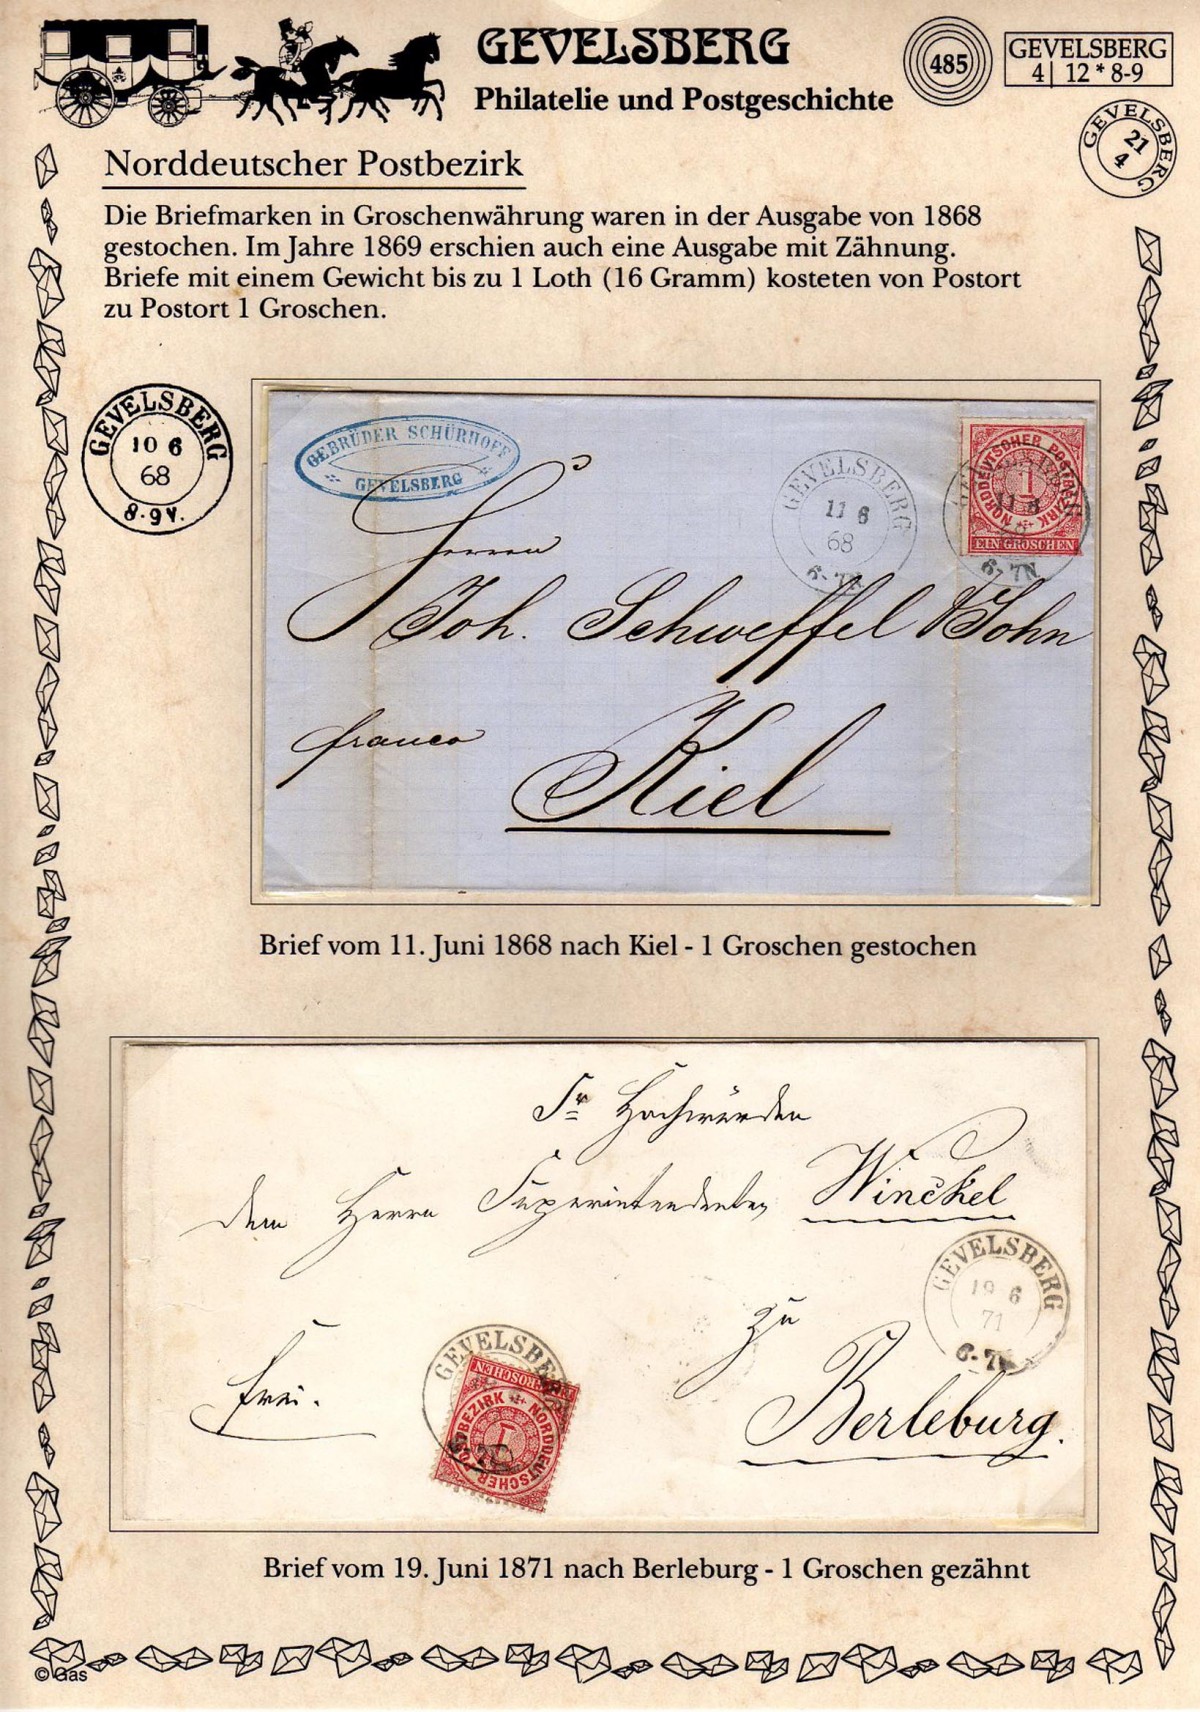 GEVELSBERG
Philatelie und Postgeschichte
485
GEVELSBERG
4| 12 * 8-9
GEVELSBERG
21
4
Norddeutscher Postbezirk
Die Briefmarken in Groschenwährung waren in der Ausgabe von 1868
gestochen. Im Jahre 1869 erschien auch eine Ausgabe mit Zähnung.
Briefe mit einem Gewicht bis zu 1 Loth (16 Gramm) kosteten von Postort
zu Postort 1 Groschen.
GEVELSBERG
10 6
68
8-9V.
GEBRÜDER SCHÜRHOFF
GEVELSBERG
GEVELSBERG
11 6
68
6-7N
NORDDEUTSCHER POSTBEZIRK
1
EIN GROSCHEN
11 6
68
6-7N
Herren
Joh. Schweffel & Sohn
franco
Kiel
Brief vom 11. Juni 1868 nach Kiel - 1 Groschen gestochen
Sr Hochwürden
dem Herrn Superintendenten Winckel
GEVELSBERG
19 6
71
6-7N
zu
Frei.
Berleburg.
GEVELSBERG
EIN GROSCHEN
NORDDEUTSCHER POSTBEZIRK
1
Brief vom 19. Juni 1871 nach Berleburg - 1 Groschen gezähnt
© Gas